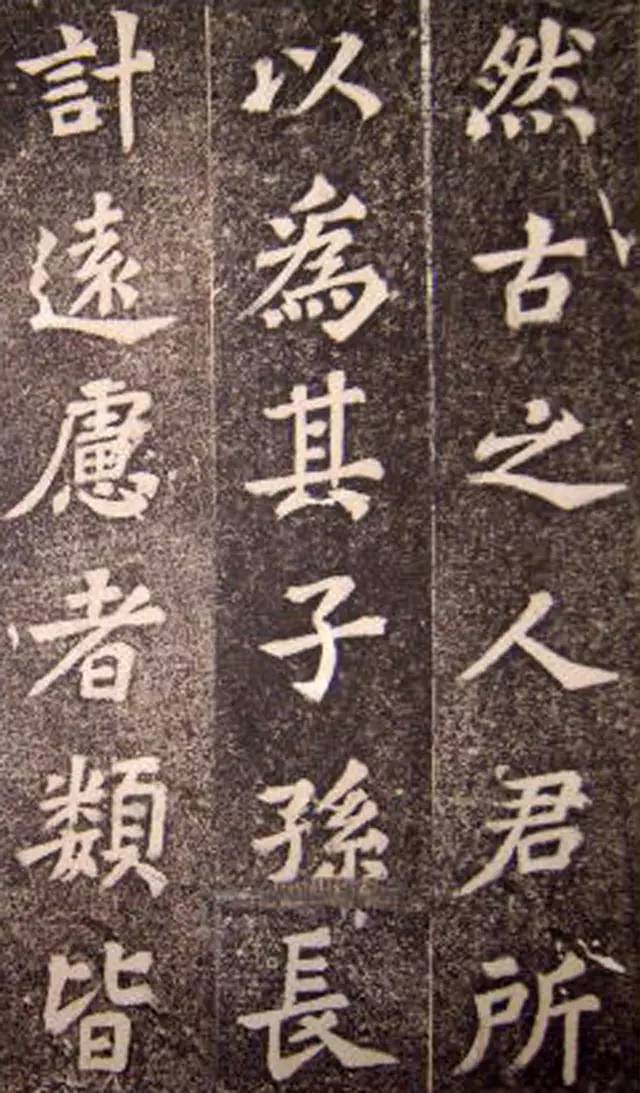 然古之人君所
以為其子孫長
計遠慮者類皆